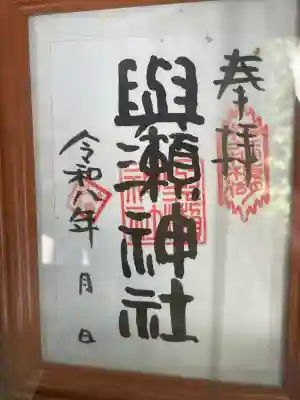 奉拝
與瀬神社
令和八年 月 日